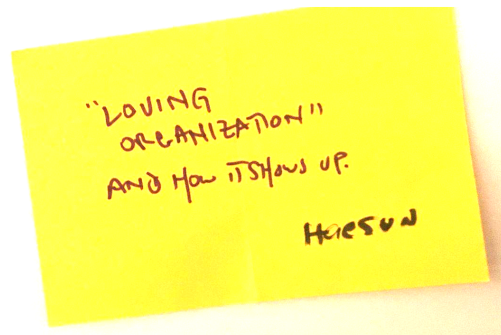 "LOVING
ORGANIZATION"
AND HOW IT SHOWS UP.
HaeSUN